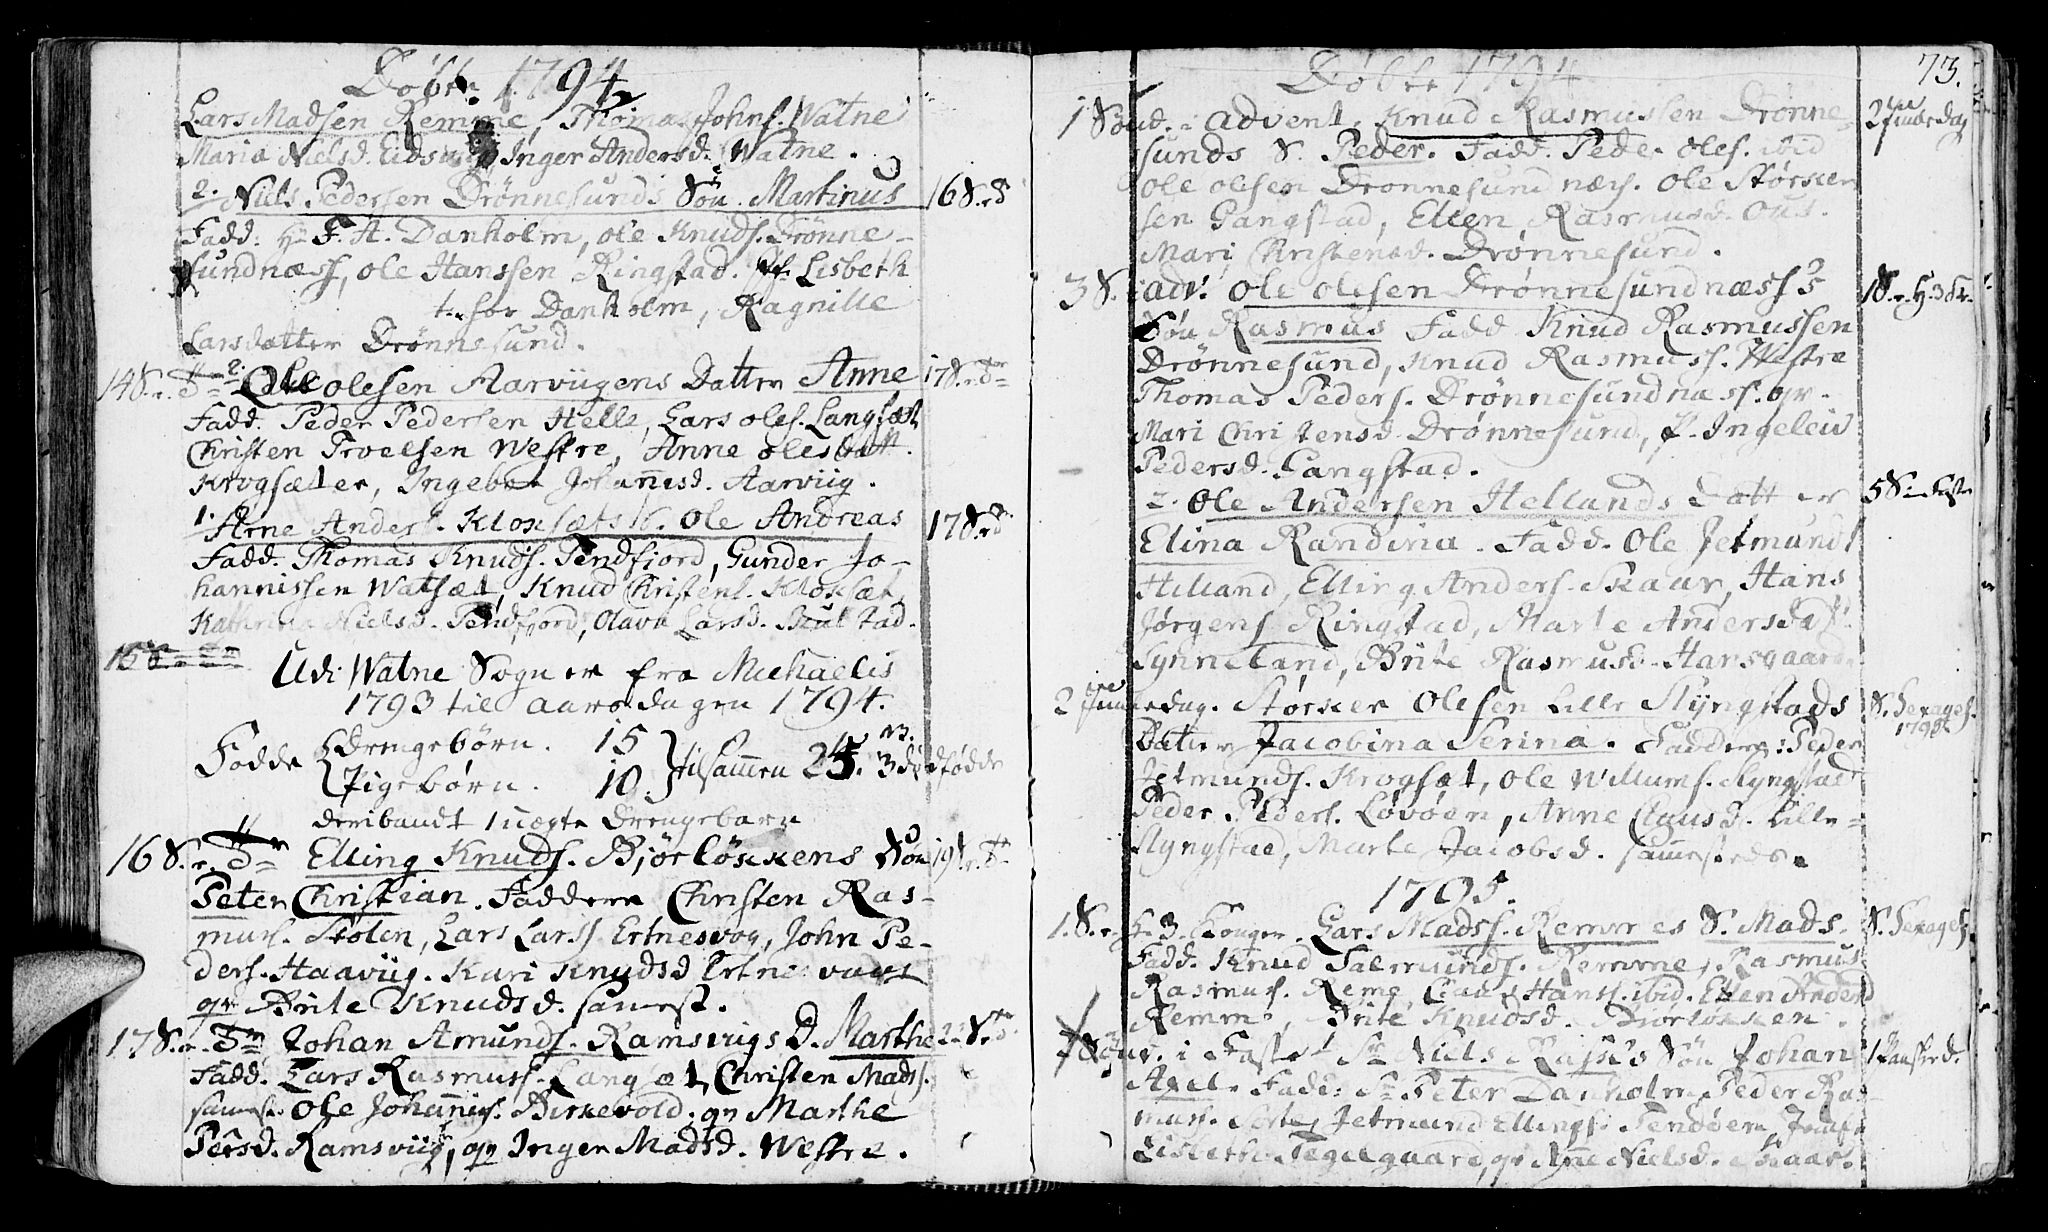 Døbte 1794
Lars Madsen Remme, Thomas Johns. Watne
Maria Nielsd. Eidsvig Inger Andersd. Watne.
2. Niels Pedersen Drönnesunds Søn Martinus 16 S. r. Tr
Fadd: Hr F. A. Danholm, Ole Knuds. Drönne-
sundnæss, Ole Hanssen Ringstad. Lisbeth
Danholm, Ragnille
Larsdatter Drönnesund.
14 S. r. Tr 2. Ole Olesen Aarviigens Datter Anne 17 S. r. Tr
Fadd. Peder Pedersen Helle, Lars Oles. Langsæt
Christen Troelsen Westre, Anne Olesdatt.
Krogsæter, Ingebor Johannesd. Aarviig.
1. Arne Anders. Kloksæts S. Ole Andreas 17 S. r. Tr
Fadd. Thomas Knuds. Tendfjord, Gunder Jo-
hannissen Watsæt, Knud Christens. Kloksæt,
Kathrina Nielsd. Tendfjord, Olava Larsd. Skulstad.
Udi Watne Sogn er fra Michaelis
1793 til Aarsdagen 1794.
Fødde Drengebørn. 15 tilsammen 25. NB. 3 dødfødde
Pigebørn. 10
deribandt 1 uægte Drengebarn
16 S. r. Tr Elling Knuds. Bjørløkkens Søn 19 S. r. Tr
Peter Christian. Faddere Christen Ras-
mus. Stølen, Lars Larss. Ertnesvog, John Pe-
ders. Haaviig. Kari Knudsd Ertnesvaag
qv Brite Knudsd. samest.
17 S. r. Tr Johan Amunds. Ramsvigs D. Marthe 2 S. r. Tr
Fadd. Lars Rasmuss. Langsæt, Christen Madss.
samest. Ole Johannis. Birkevold. qv Marthe
Persd. Ramsviig, qv Inger Madsd. Westre.
73.
Døbte 1794
1 Sønd. i Advent, Knud Rasmussen Drönne- 2 Juuledag
sunds S. Peder. Fadd. Peder Oles. ibid
Ole Olesen Drönnesundnæss. Ole Størker
sen Gangstad, Ellen Rasmusd.
Mari Christensd. Drönnesund.
3 S. i adv. Ole Olesen Drönnesundnæss's 1 S. r. H. 3 K.
Søn Rasmus Fadd Knud Rasmussen
Drönnesund, Knud Rasmuss. Westre
Thomas Peders. Drönnesundnæss. qv.
Mari Christensd. Drönnesund, P. Ingeleiv
Pedersd. Gangstad.
2. Ole Andersen Hellands Datter 5 S. i Faste
Elina Randina. Fadd. Ole Jetmunds
Helland, Elling Anders. Skaar, Hans
Jørgens Ringstad, Marte Andersdatt.
Synneland, Brite Rasmusd. Hansgaard.
2 Juuledag. Størker Olesen Lille Slyngstads S. Sexages.
Datter Jacobina Serina. Faddere: Peder 1795
Jetmunds. Krogsæt, Ole Willums. Slyngstad
Peder Peders. Løvøen, Anne Clausd. Lille-
Slyngstad, Marte Jacobsd. sammesteds.
1795.
1. S. r. H. 3. Konger. Lars Madss. Remmes S. Mads. S. Sexages.
Fadd. Knud Salmunds. Remme, Rasmus
Rasmus. Reme, Claus Hans. ibid. Ellen Andersd
Remme, Brite Knudsd. Biørløkken.
Sønd. i Faste Sr Niels Rasks Søn Johan 1 Paasked.
Axel. Fadd: Sr Peter Danholm, Peder Ras-
mus. Jetmund Ellings. Tendøen, Jomfr
Lisbeth Tegelgaard, qv Anne Nielsd. Skaar.